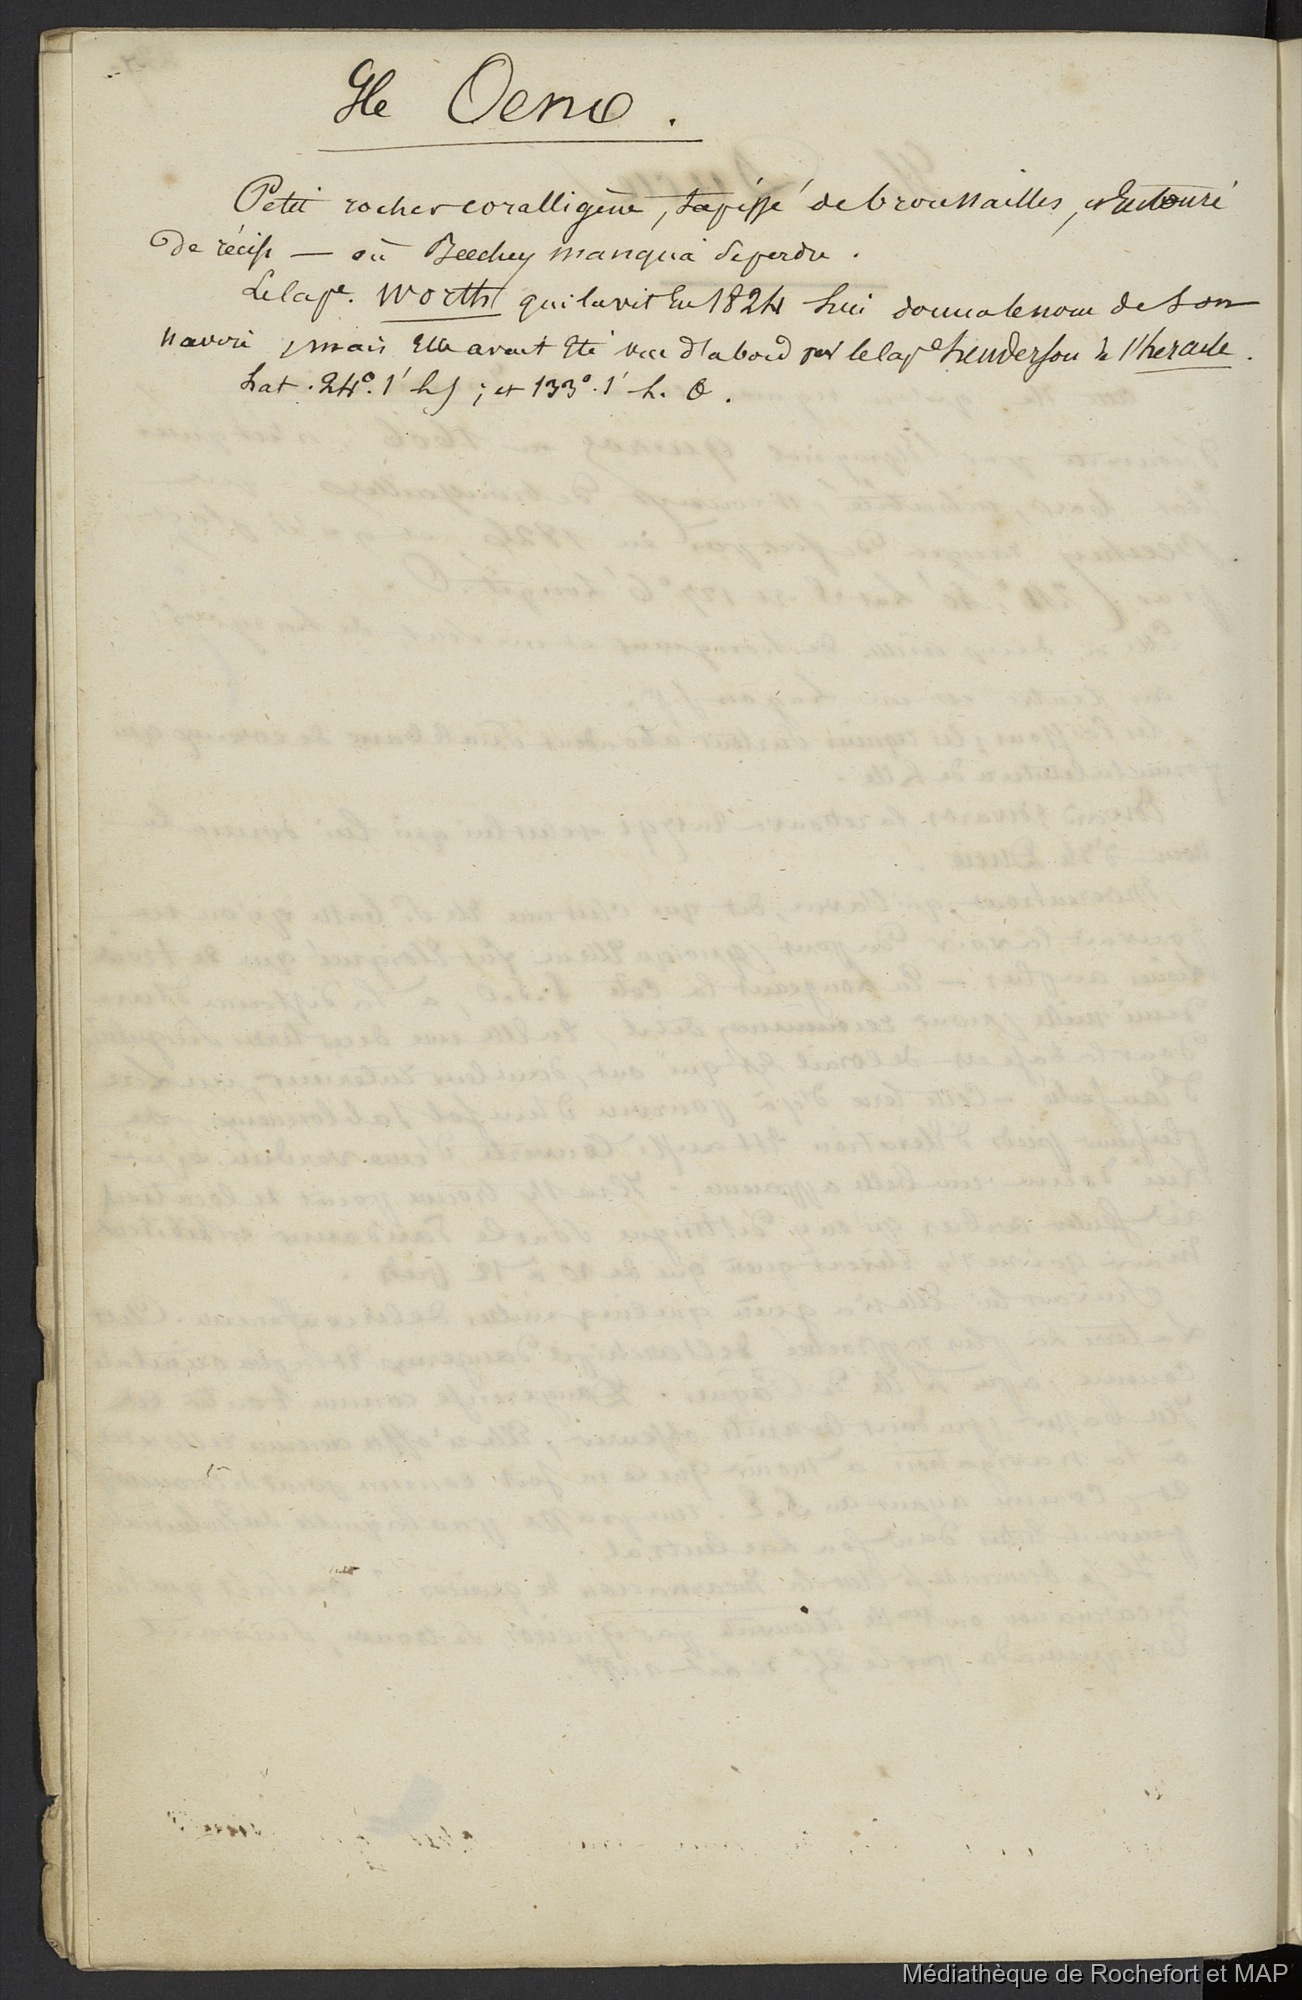 Ile Oeno.
Petit rocher coralligène, tapissé de broussailles, et Entouré
De récifs — où Beechey manqua se perdre.
Le cape. Worth qui la vit En 1824 lui donna le nom de son
navire, mais Elle avait Eté vue d'abord par le cape henderson de l'hercule.
Lat. 24°. 1' L S; et 133°. 1' L. O.
Médiathèque de Rochefort et MAP